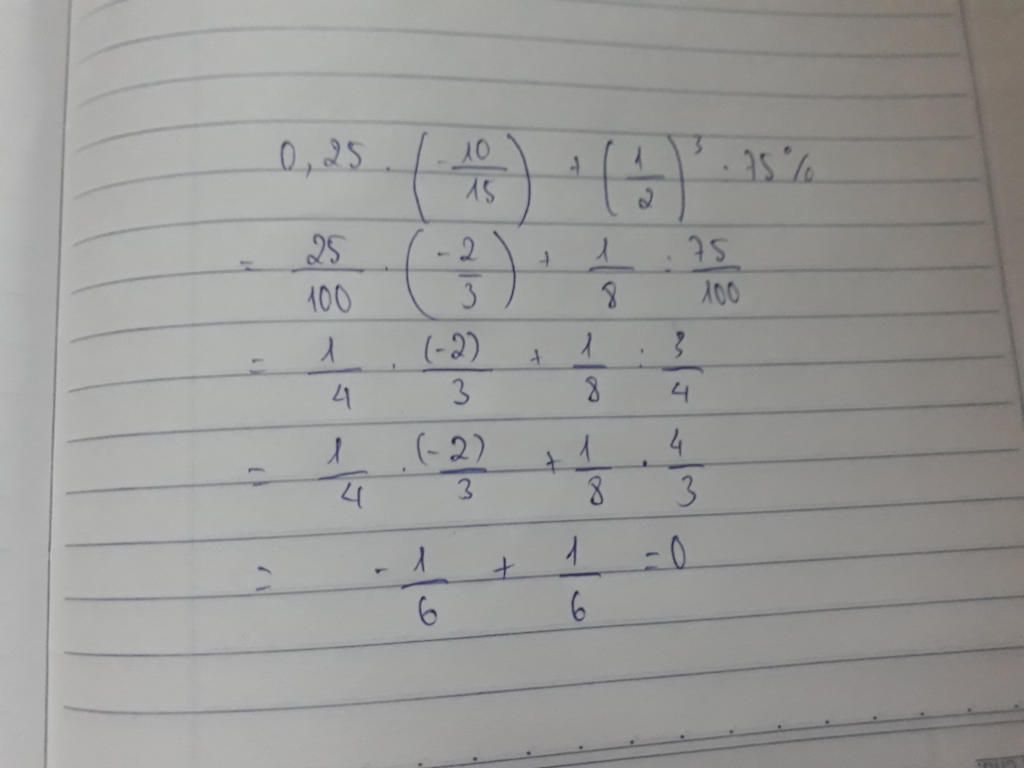 0,25 . (-10/15) + (1/2)^3 . 75%
= 25/100 . (-2/3) + 1/8 : 75/100
= 1/4 . (-2)/3 + 1/8 : 3/4
= 1/4 . (-2)/3 + 1/8 . 4/3
= -1/6 + 1/6 = 0